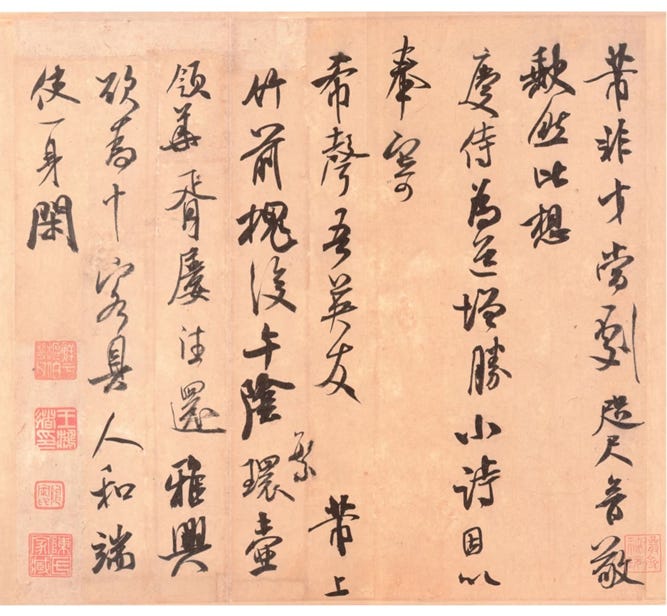 芾非才當劇咫尺音敬
缺然比想
慶侍為道增勝小詩因以
奉寄
希聲吾英友 芾上
竹前槐後午陰繁環壺
領華胥屢往還雅興
欲為十客具人和端
使一身閑
陳氏家藏